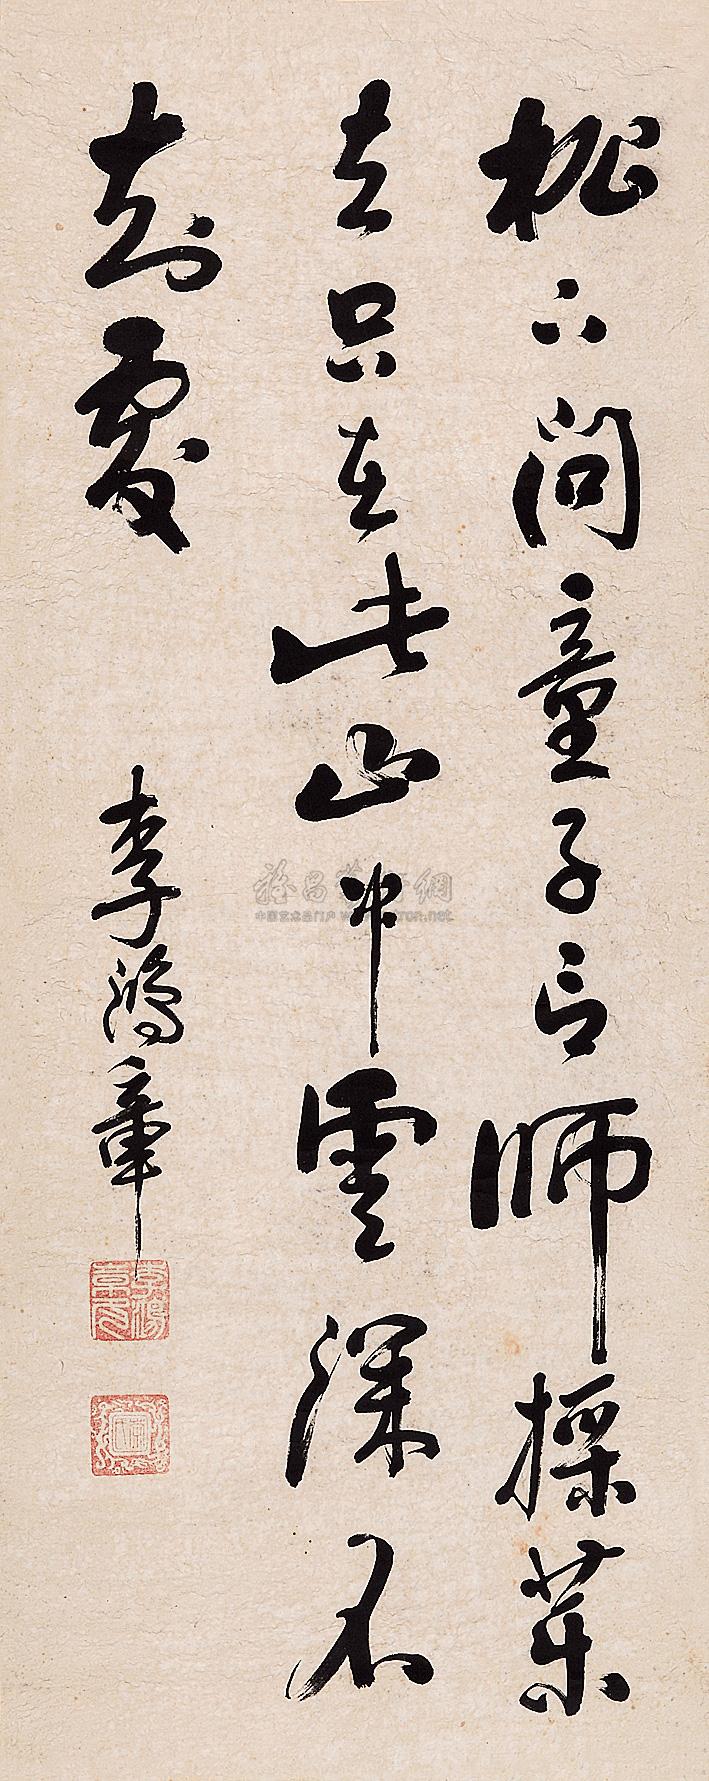 松下問童子言師採藥
去只在此山中雲深不
知處
李鴻章
中国艺术品门户 www.artron.net